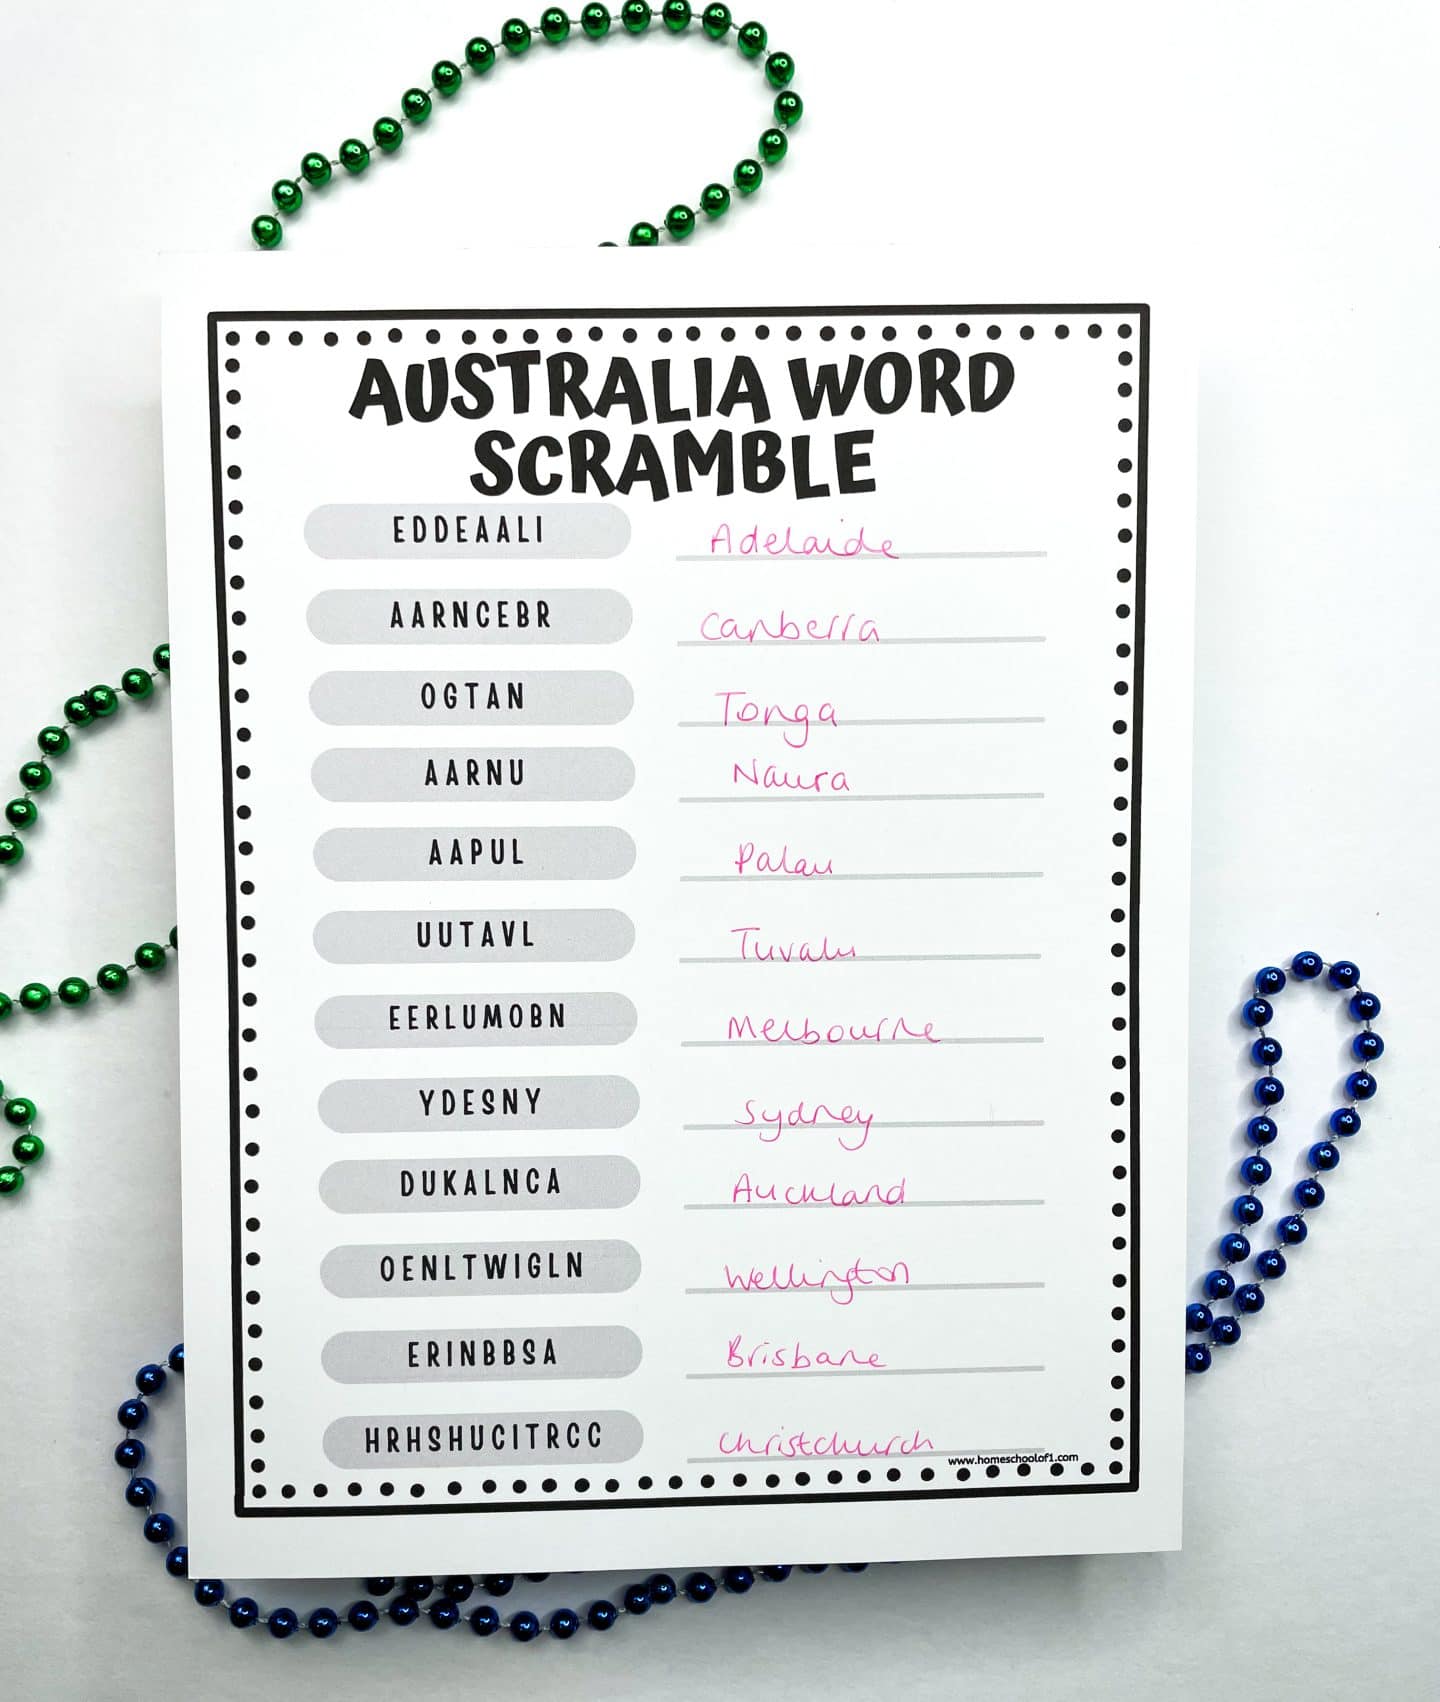 AUSTRALIA WORD
SCRAMBLE
EDDEAALI Adelaide
AARNCEBR Canberra
OGTAN Tonga
AARNU Naura
AAPUL Palau
UUTAVL Tuvalu
EERLUMOBN Melbourne
YDESNY Sydney
DUKALNCA Auckland
OENLTWIGLN Wellington
ERINBBSA Brisbane
HRHSHUCITRCC Christchurch
www.homeschoolof1.com